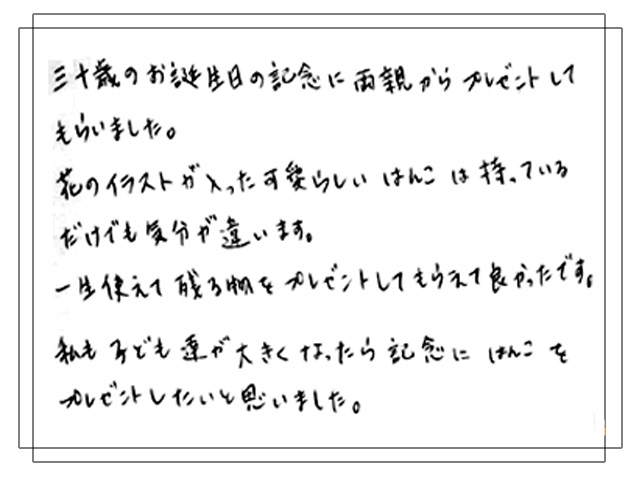 三十歳のお誕生日の記念に両親からプレゼントして
もらいました。
花のイラストが入った可愛らしいはんこは持っている
だけでも気分が違います。
一生使えて残る物をプレゼントしてもらえて良かったです。
私も子ども達が大きくなったら記念にはんこを
プレゼントしたいと思いました。